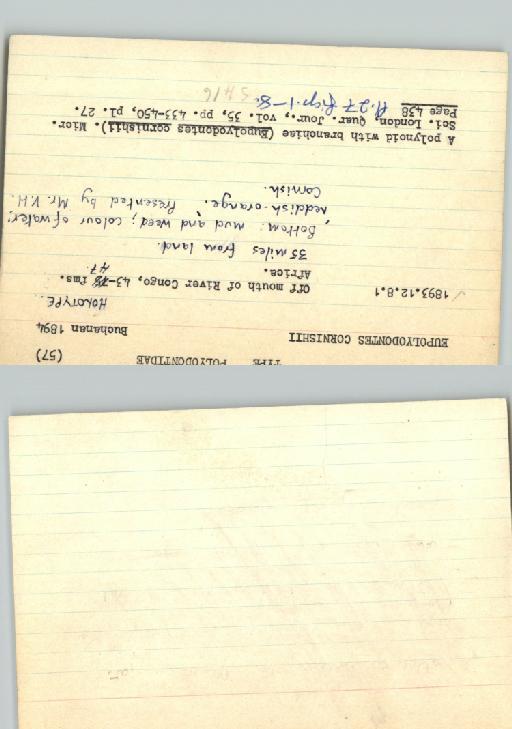 TYPE POLYODONTIDAE (57)
EUPOLYODONTES CORNISHII Buchanan 1894
HOLOTYPE.
1893.12.8.1 Off mouth of River Congo, 43- fms.
47
Africa.
35 miles from land.
Bottom: mud and weed; colour of water,
reddish-orange. Presented by Mr. V.H.
Cornish.
A polynoid with branchiae (Eupolyodontes cornishii). Micr.
Sci. London, Quar. Jour., vol. 35, pp. 433-450, pl. 27.
Page 438 Pl. 27 figs. 1-8.